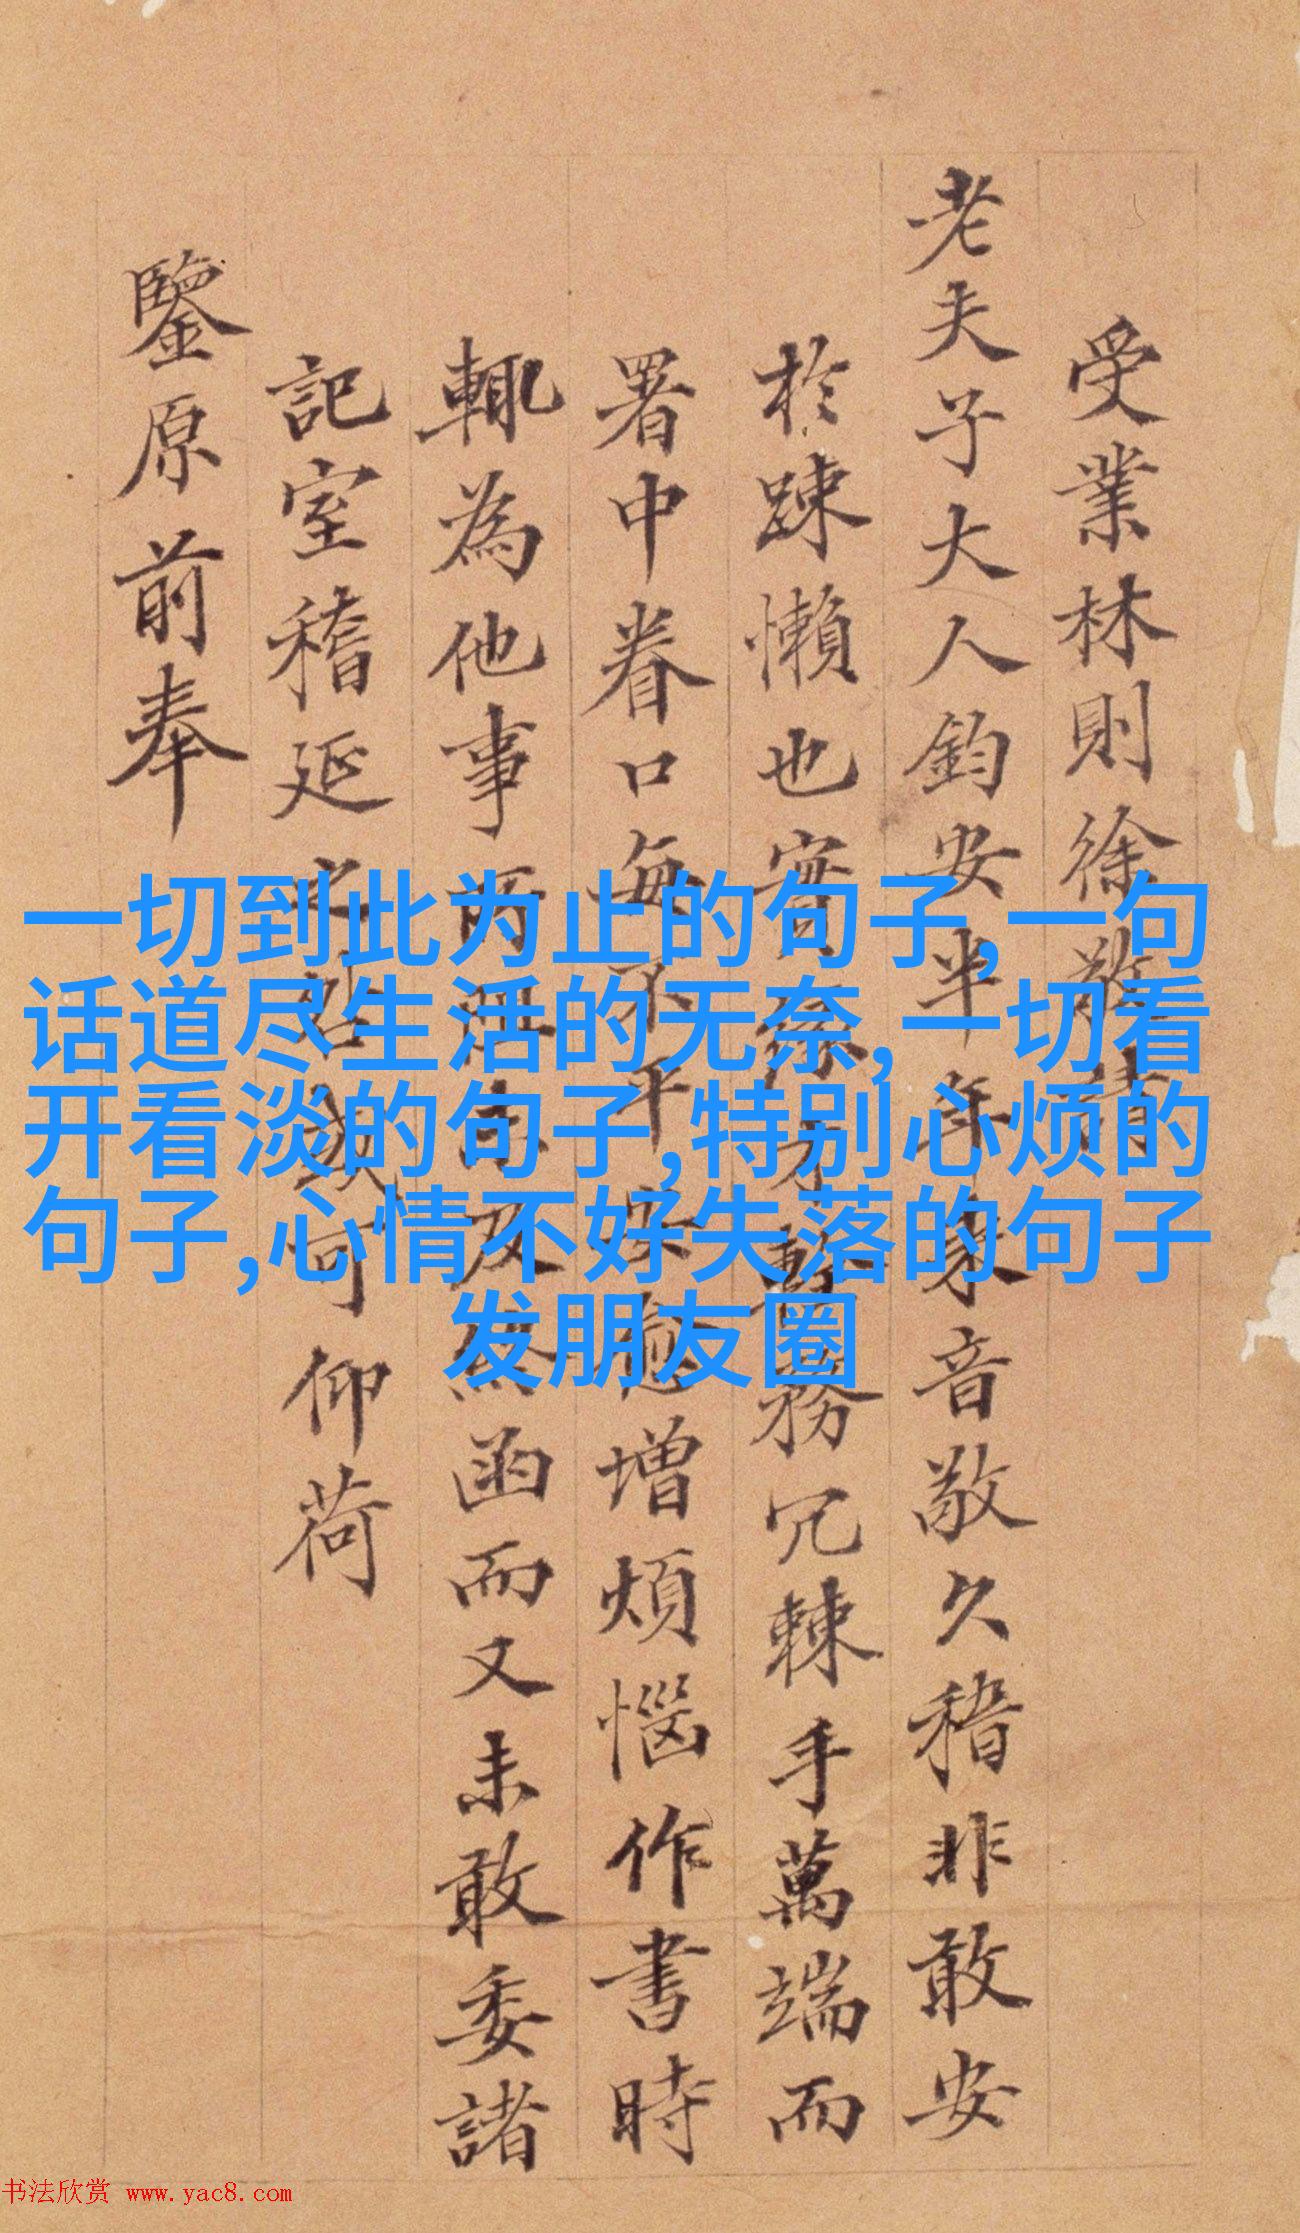 受業林則徐敬請
老夫子大人鈞安半年来音敬久稽非敢安
於踈懶也實緣才輇務冗棘手萬端而
署中眷口每不平安愈增煩惱作書時
輒為他事所阻未及終函而又未敢委諸
記室稽延之咎或可仰荷
鑒原前奉
一切到此为止的句子,一句
话道尽生活的无奈,一切看
开看淡的句子,特别心烦的
句子,心情不好失落的句子
发朋友圈
书法欣赏 www.yac8.com